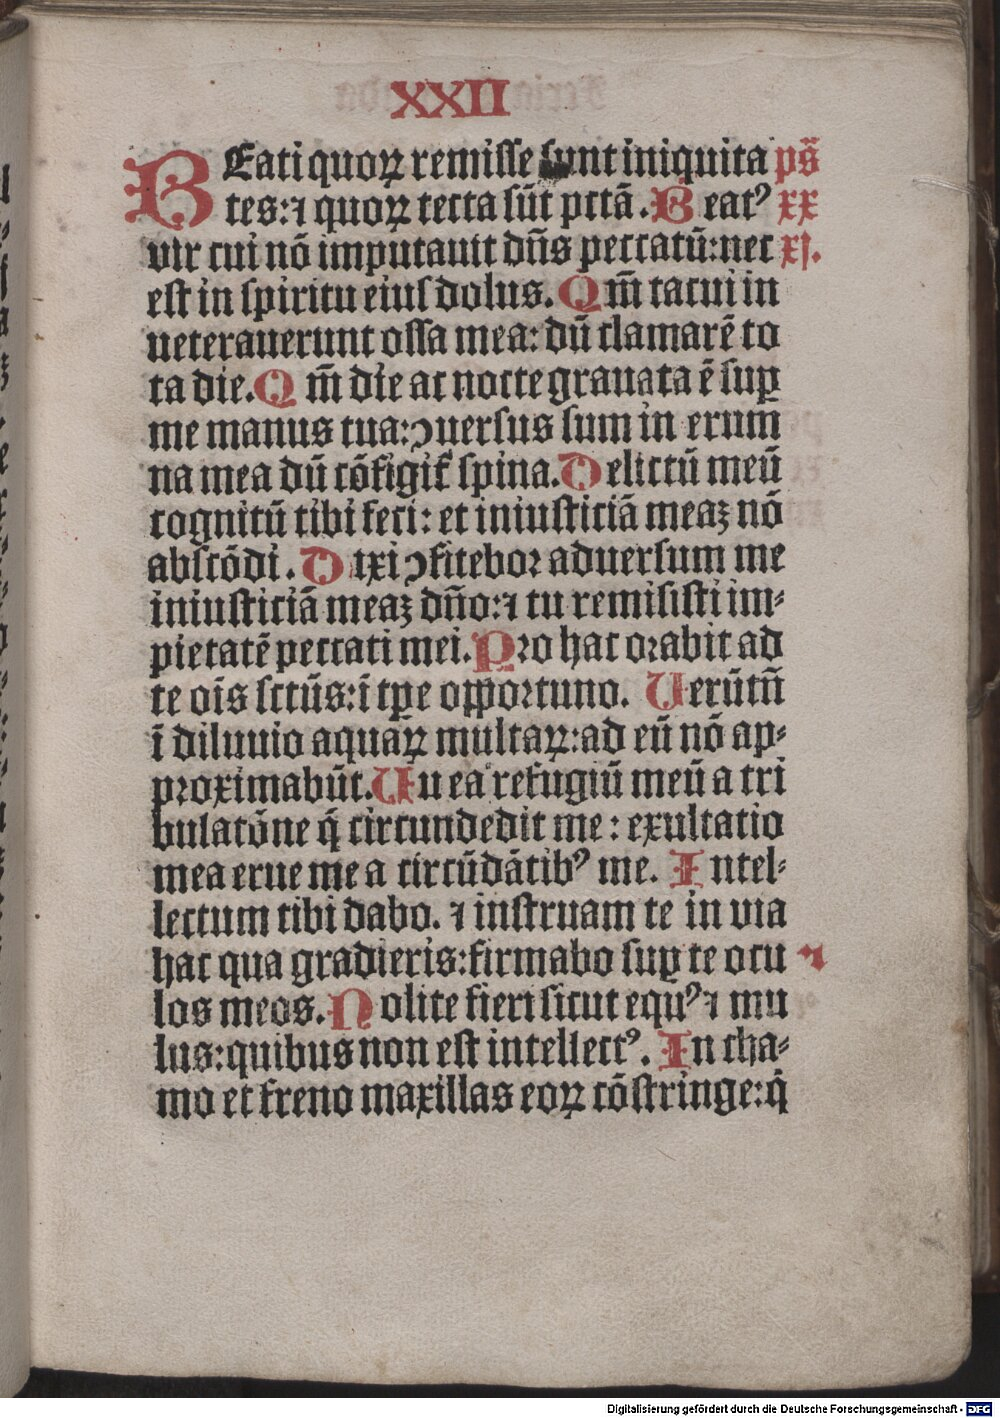 XXII
BEati quoꝝ remisse sunt iniquita ps̄
tes:⁊ quoꝝ tecta sūt pctā. Beatꝰ xx
vir cui nō imputauit dn̄s peccatū:nec xj.
est in spiritu eius dolus. Qm̄ tacui in
ueterauerunt ossa mea: dū clamarē to
ta die. Qm̄ die ac nocte grauata ē suꝑ
me manus tua:ↄuersus sum in erum
na mea dū cōfigit᷑ spina. Delictū meū
cognitū tibi feci: et iniusticiā meaꝫ nō
abscōdi. Dixi ↄfitebor aduersum me
iniusticiā meaꝫ dn̄o:⁊ tu remisisti im⸗
pietatē peccati mei. Pro hac orabit ad
te oīs sctūs:ī tꝑe opportuno. Uerūtn̄
ī diluuio aquaꝝ multaꝝ:ad eū nō ap⸗
proximabūt. Tu es refugiū meū a tri
bulatōne q̄ circundedit me: exultatio
mea erue me a circūdātibꝰ me. Intel⸗
lectum tibi dabo. ⁊ instruam te in via
hac qua gradieris:firmabo suꝑ te ocu ⁊
los meos. Nolite fieri sicut equꝰ ⁊ mu
lus:quibus non est intellectꝰ. In cha⸗
mo et freno maxillas eoꝝ cōstringe:q̄
Digitalisierung gefördert durch die Deutsche Forschungsgemeinschaft - DFG